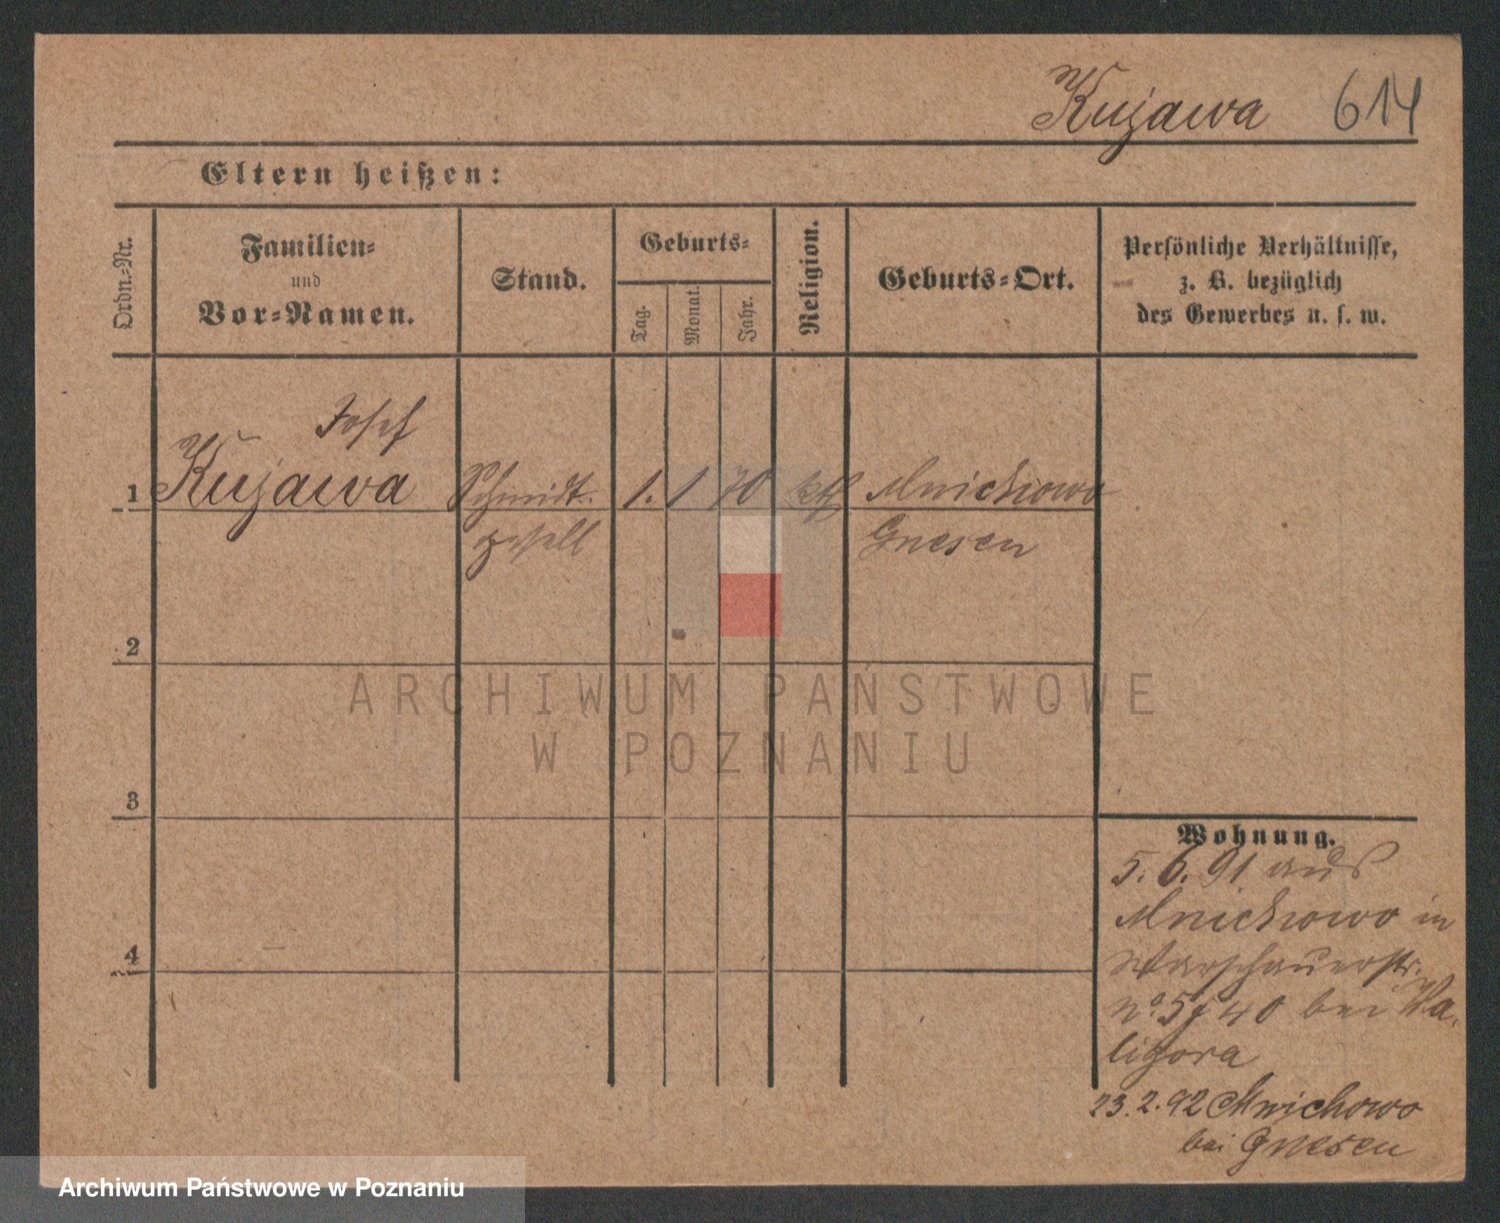 Kujawa 614
Eltern heißen:
Ordn.-Nr.
Familien-
und
Vor-Namen.
Stand.
Geburts-
Tag.
Monat.
Jahr.
Religion.
Geburts-Ort.
Persönliche Verhältnisse,
z. B. bezüglich
des Gewerbes u. s. w.
Josef
1 Kujawa Schmidt- 1. 1 70 kth Mnichowo
gesell Gnesen
2
3
4
Wohnung.
5. 6. 91 aus
Mnichowo in
Warschauerstr.
No. 40 bei Wa-
ligora
23. 2. 92 Mnichowo
bei Gnesen
ARCHIWUM PAŃSTWOWE
W POZNANIU
Archiwum Państwowe w Poznaniu